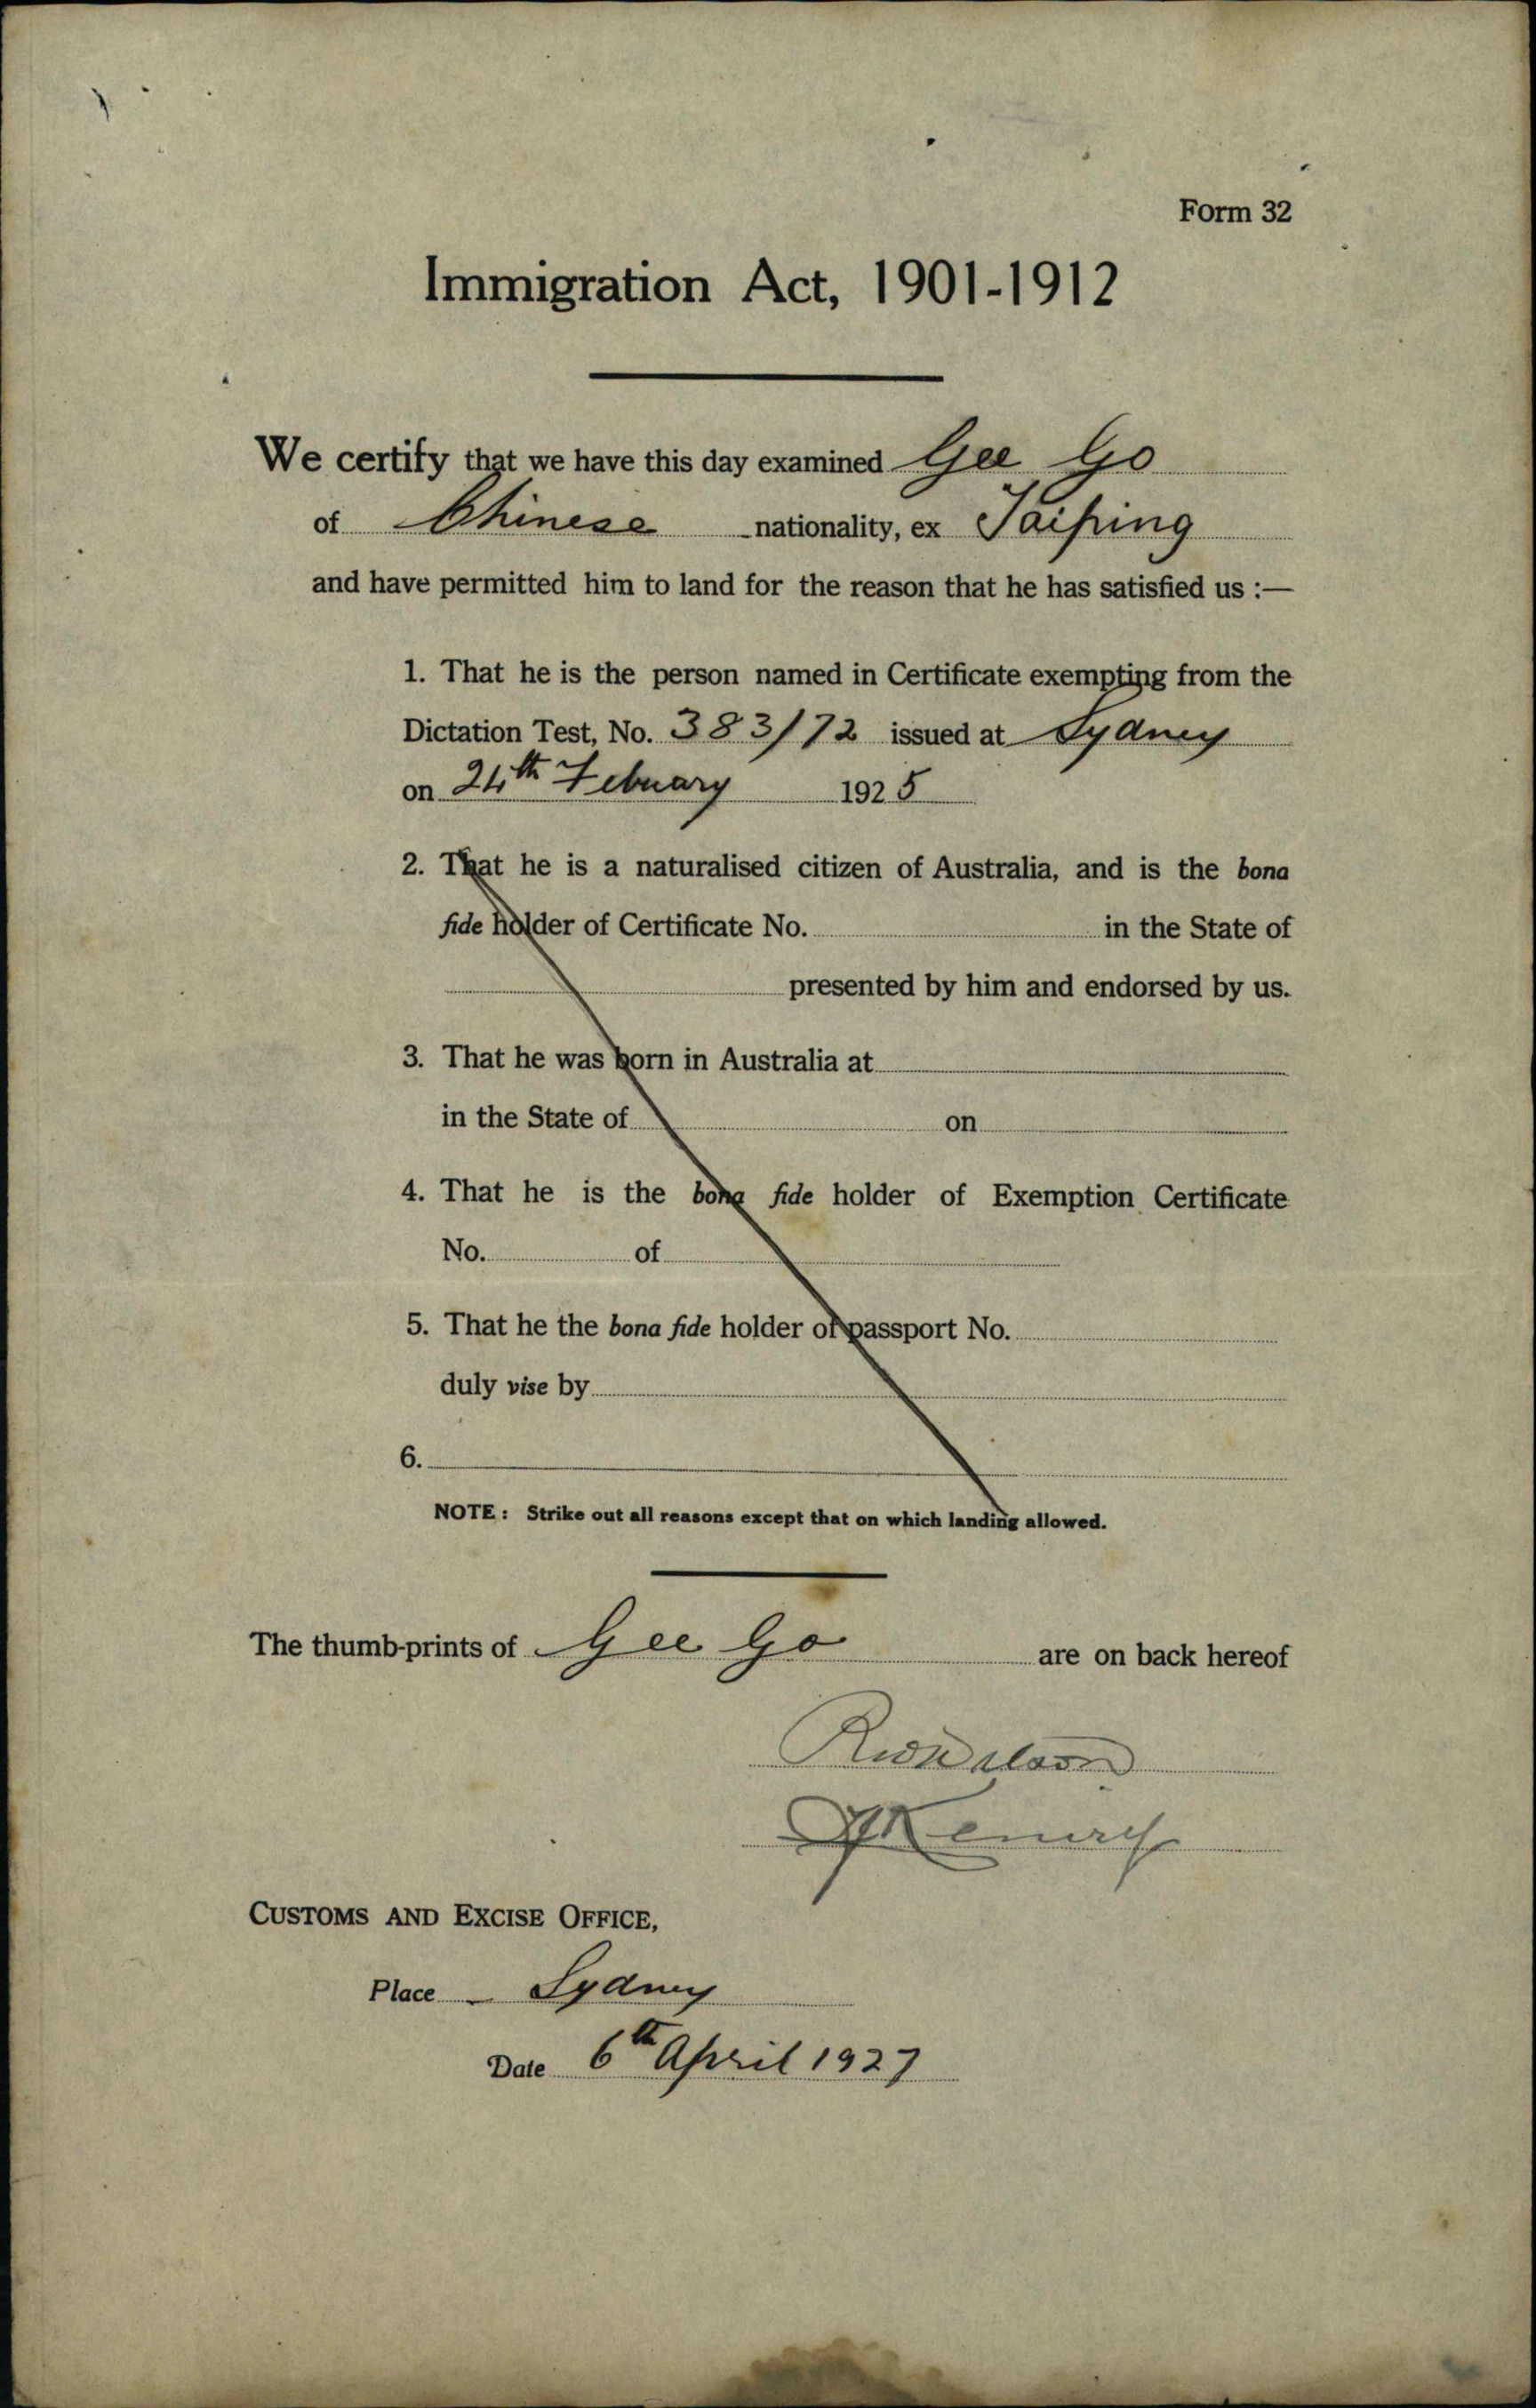 Form 32
Immigration Act, 1901-1912
We certify that we have this day examined Gee Go
of Chinese nationality, ex Taiping
and have permitted him to land for the reason that he has satisfied us :—
1. That he is the person named in Certificate exempting from the
Dictation Test, No. 383/72 issued at Sydney
on 24th Febuary 1925
2. That he is a naturalised citizen of Australia, and is the bona
fide holder of Certificate No. in the State of
presented by him and endorsed by us.
3. That he was born in Australia at
in the State of on
4. That he is the bona fide holder of Exemption Certificate
No. of
5. That he the bona fide holder of passport No.
duly vise by
6.
NOTE : Strike out all reasons except that on which landing allowed.
The thumb-prints of Gee Go are on back hereof
CUSTOMS AND EXCISE OFFICE,
Place Sydney
Date 6th April 1927